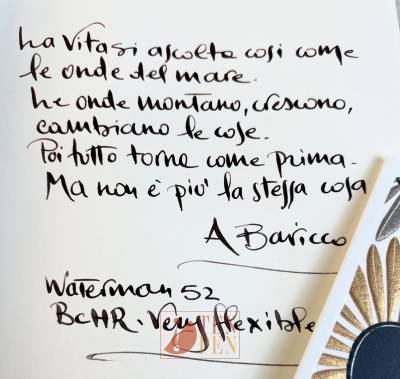 La vita si ascolta così come
le onde del mare.
Le onde montano, crescono,
cambiano le cose.
Poi tutto torna come prima.
Ma non è più la stessa cosa
A Baricco
Waterman 52
BCHR. Very flexible